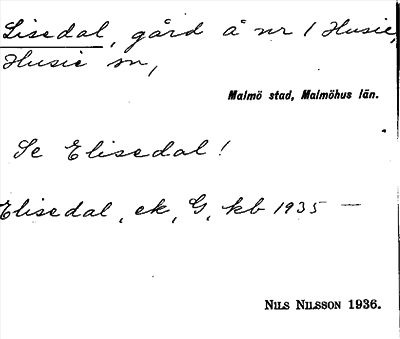 Lisedal, gård å nr 1 Husie,
Husie sn,
Malmö stad, Malmöhus län.
Se Elisedal!
Elisedal, ek, G, kb 1935 —
NILS NILSSON 1936.